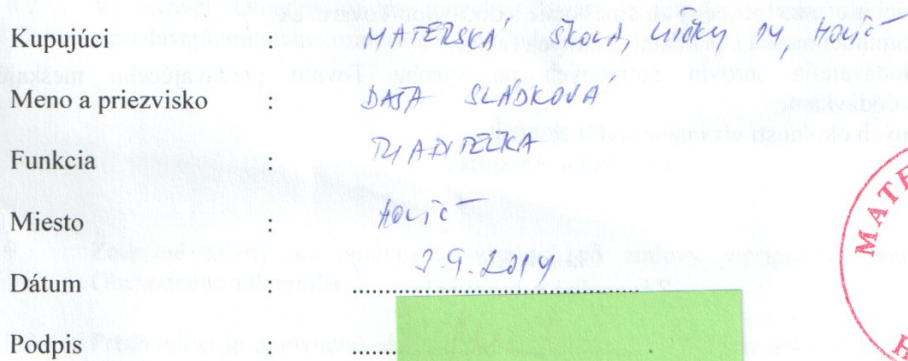 Kupujúci : MATERSKÁ ŠKOLA, 14, Holíč
Meno a priezvisko : DAŠA SLÁDKOVÁ
Funkcia : RIADITEĽKA
Miesto : Holíč
Dátum : 2.9.2014
Podpis : .......
MATE